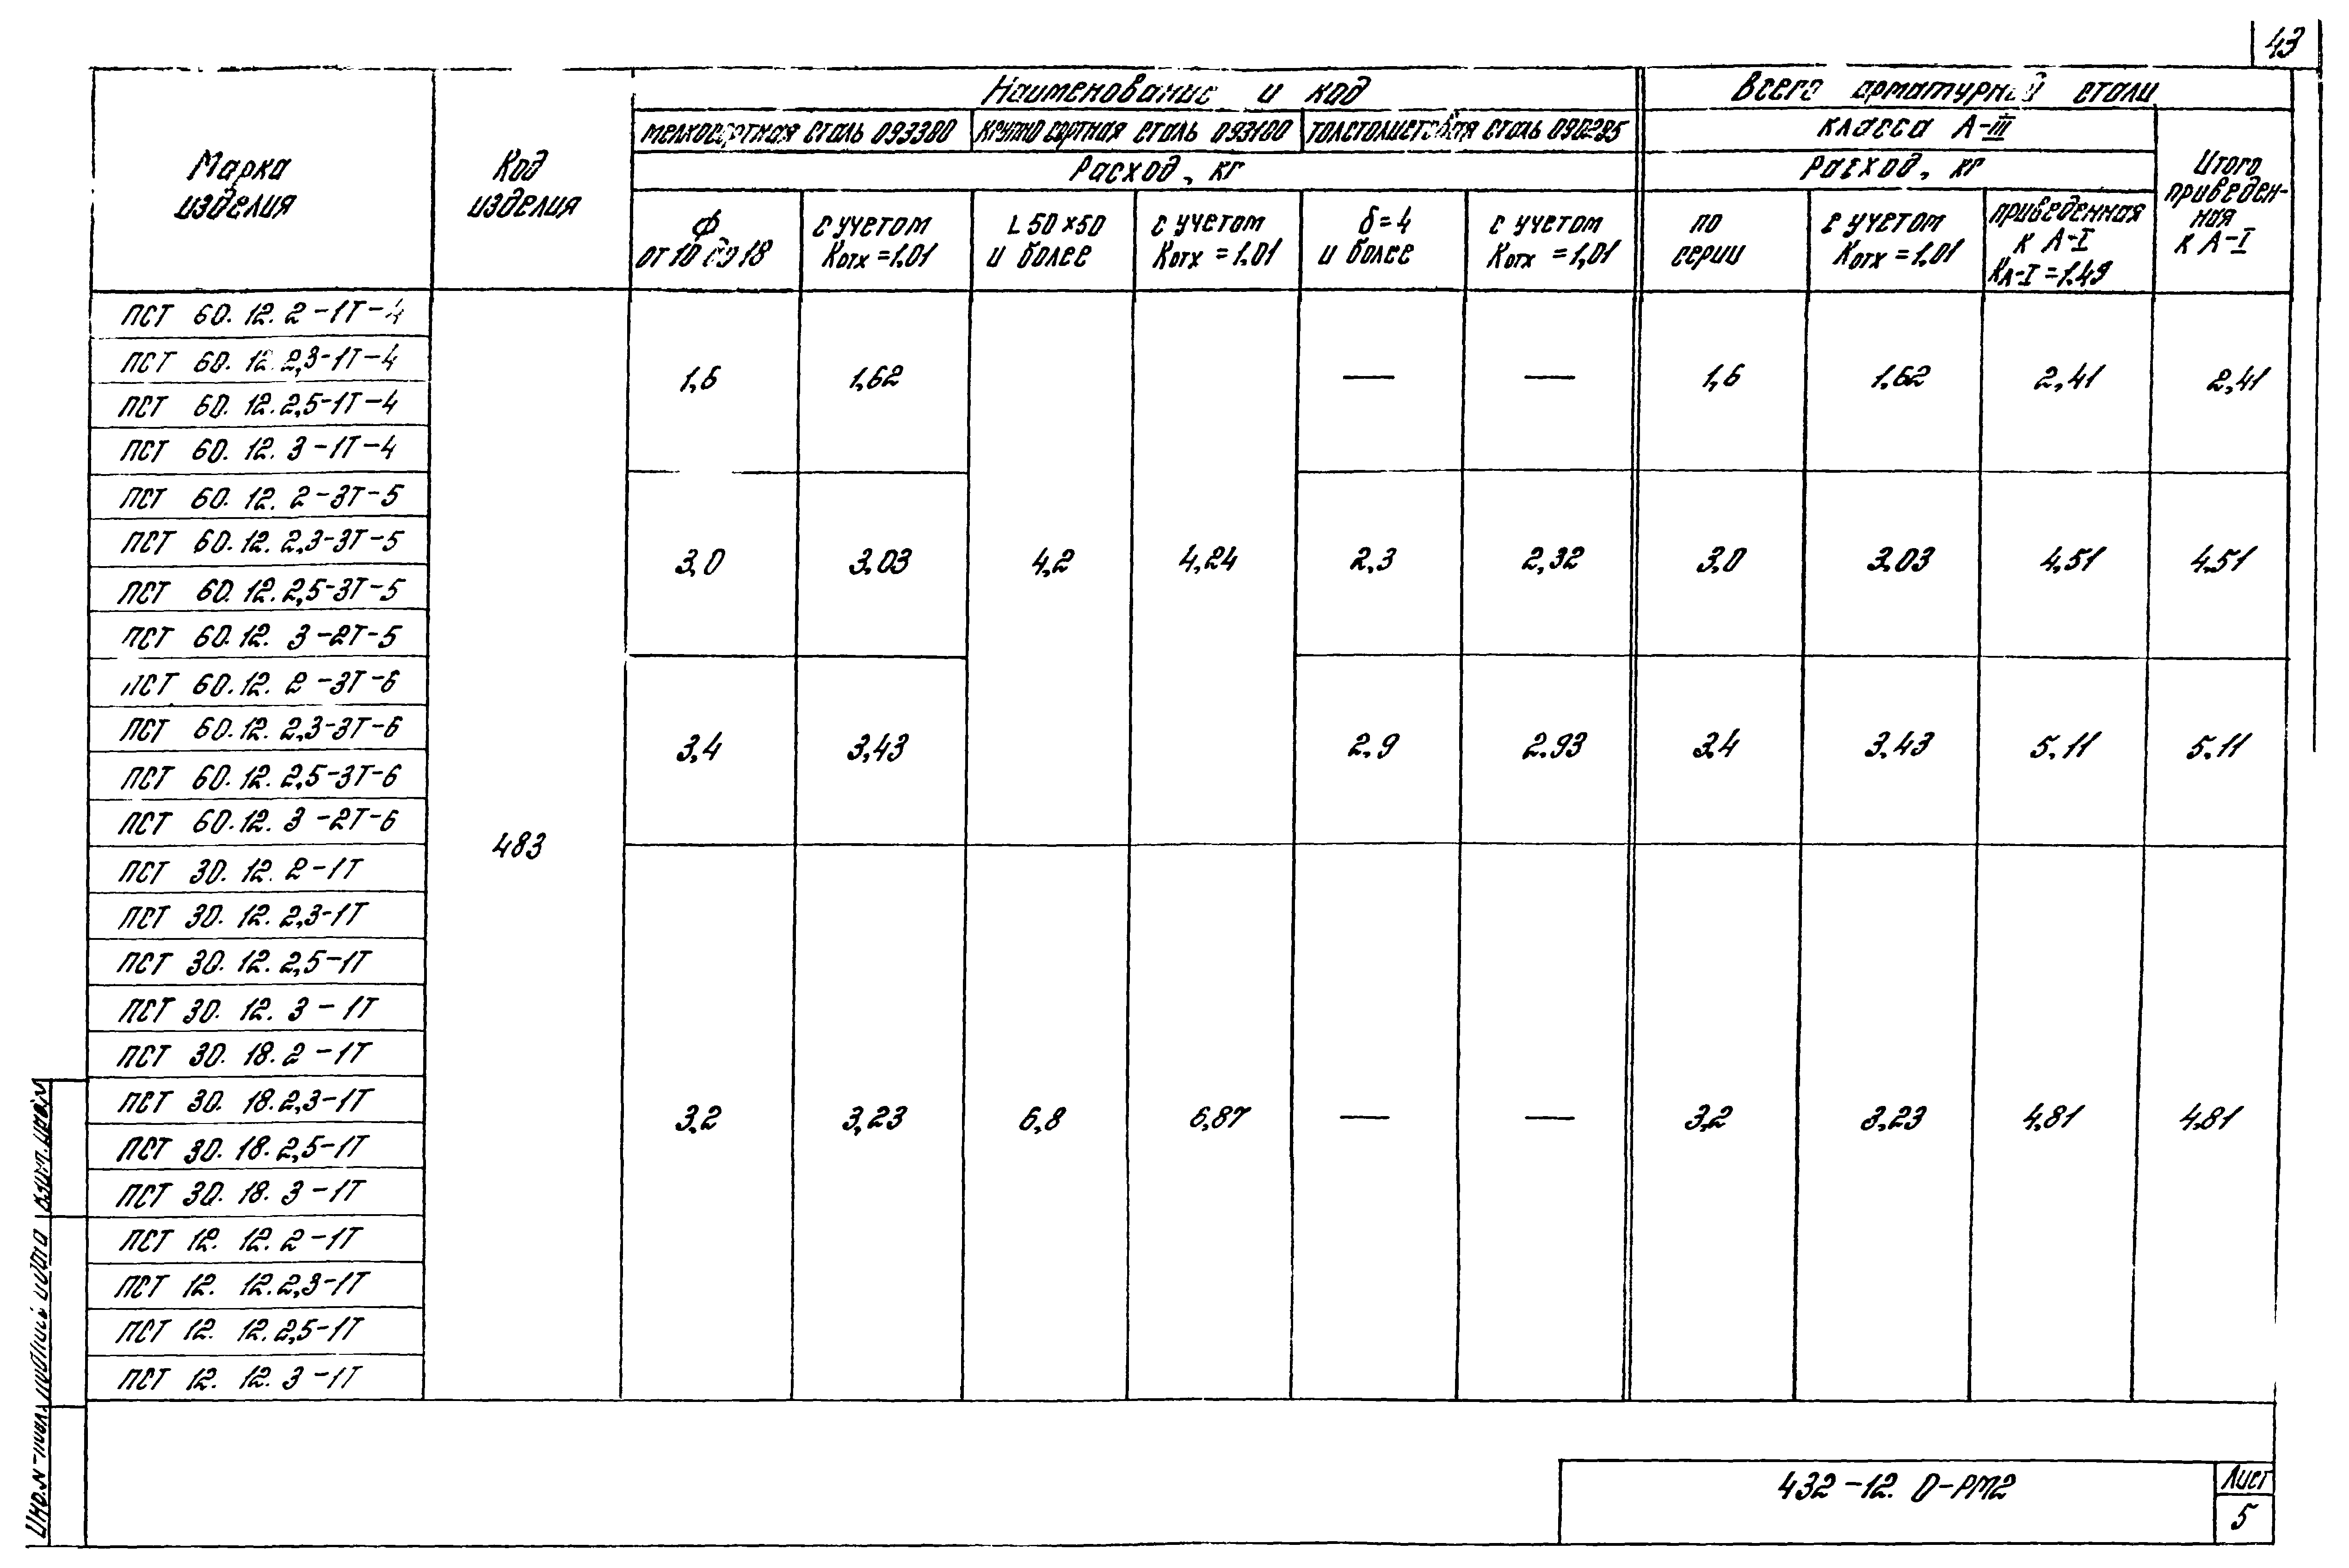 43
Марка изделия
Код изделия
Наименование и код
Всего арматурной стали
мелкосортная сталь 093300
крупносортная сталь 093100
толстолистовая сталь
класса А-III
Итого приведен-ная к А-I
Расход, кг
Расход, кг
Ф от 10 до 18
с учетом Котх = 1.01
L 50×50 и более
с учетом Котх = 1.01
δ=4 и более
с учетом Котх = 1,01
по серии
с учетом Котх = 1.01
приведенная к А-I КА-I = 1.49
ПСТ 60.12.2-1Т-4
ПСТ 60.12.2,3-1Т-4
1,6 1,62 — — 1,6 1,62 2,41 2,41
ПСТ 60.12.2,5-1Т-4
ПСТ 60.12.3-1Т-4
ПСТ 60.12.2-3Т-5
ПСТ 60.12.2,3-3Т-5
3,0 3,03 4,2 4,24 2,3 2,32 3,0 3,03 4,51 4.51
ПСТ 60.12.2,5-3Т-5
ПСТ 60.12.3-2Т-5
ПСТ 60.12.2-3Т-6
ПСТ 60.12.2,3-3Т-6
3,4 3,43 2,9 2.93 3,4 3,43 5,11 5,11
ПСТ 60.12.2,5-3Т-6
ПСТ 60.12.3-2Т-6
483
ПСТ 30.12.2-1Т
ПСТ 30.12.2,3-1Т
ПСТ 30.12.2,5-1Т
ПСТ 30.12.3-1Т
ПСТ 30.18.2-1Т
ПСТ 30.18.2,3-1Т
3,2 3,23 6,8 6,87 — — 3,2 3,23 4,81 4,81
ПСТ 30.18.2,5-1Т
ПСТ 30.18.3-1Т
ПСТ 12.12.2-1Т
ПСТ 12.12.2,3-1Т
ПСТ 12.12.2,5-1Т
ПСТ 12.12.3-1Т
432-12.0-РМ2
Лист
5
Инв.№ подл. Подпись и дата Взам. инв.№